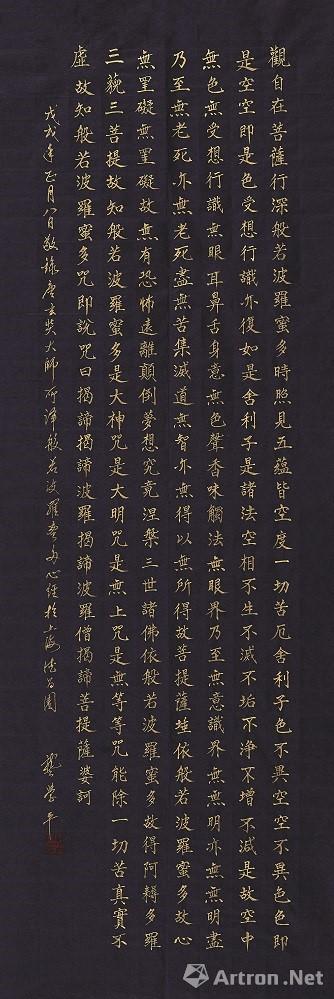 觀自在菩薩行深般若波羅蜜多時照見五蘊皆空度一切苦厄舍利子色不異空空不異色色即
是空空即是色受想行識亦復如是舍利子是諸法空相不生不滅不垢不淨不增不減是故空中
無色無受想行識無眼耳鼻舌身意無色聲香味觸法無眼界乃至無意識界無無明亦無無明盡
乃至無老死亦無老死盡無苦集滅道無智亦無得以無所得故菩提薩埵依般若波羅蜜多故心
無罣礙無罣礙故無有恐怖遠離顛倒夢想究竟涅槃三世諸佛依般若波羅蜜多故得阿耨多羅
三藐三菩提故知般若波羅蜜多是大神咒是大明咒是無上咒是無等等咒能除一切苦真實不
虛故知般若波羅蜜多咒即說咒曰揭諦揭諦波羅揭諦波羅僧揭諦菩提薩婆訶
戊戌年正月八日敬錄唐玄奘大師所譯般若波羅蜜多心經於上海 龔學平
Artron.Net